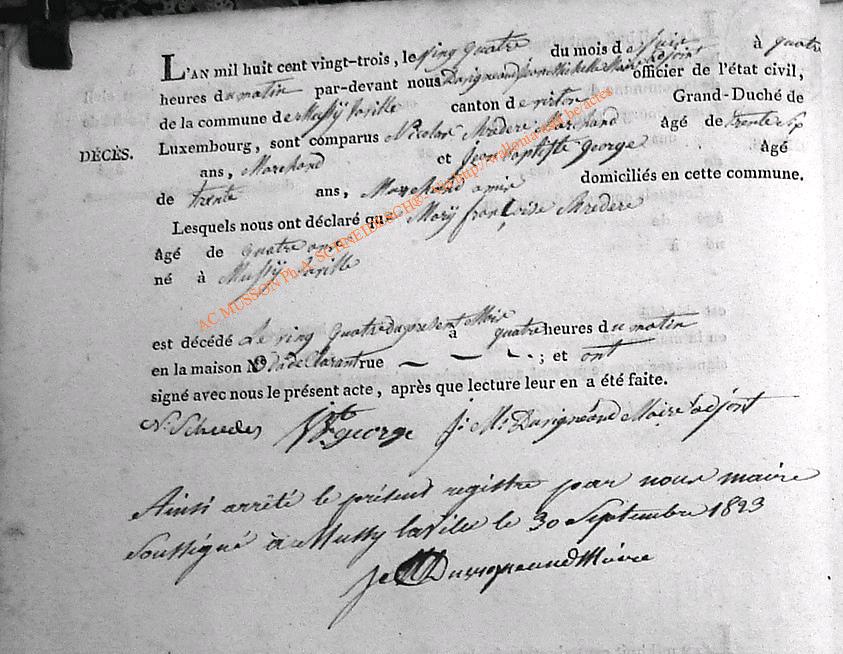 L'AN mil huit cent vingt-trois, le ving quatre du mois d à quatre
heures du matin par-devant nous Davigneaud Jean Michelle Maire adjoint officier de l'état civil,
de la commune de Mussÿ laville canton de virton Grand-Duché de
DÉCÈS. Luxembourg, sont comparus Nicolas Sredere Marchand âgé de trente
ans, Marchand et Jean baptiste george âgé
de trente ans, Marchand amis domiciliés en cette commune.
Lesquels nous ont déclaré que Marÿ françoise Sredere
âgé de quatre ans
né à Mussÿ laville
est décédé Le ving quatre du present Mois à quatre heures du matin
en la maison No du declarant rue — — — ; et ont
signé avec nous le présent acte, après que lecture leur en a été faite.
N. Schreder george J. M. Davigneaud Maire adjoint
Ainsi arrêté le présent registre par nous maire
soussigné à Mussy laville le 30 Septembre 1823
J M Davigneaud Maire
AC MUSSON Ph.A. SCHNEIDESCH© http://wallonia.asbl.be/actes